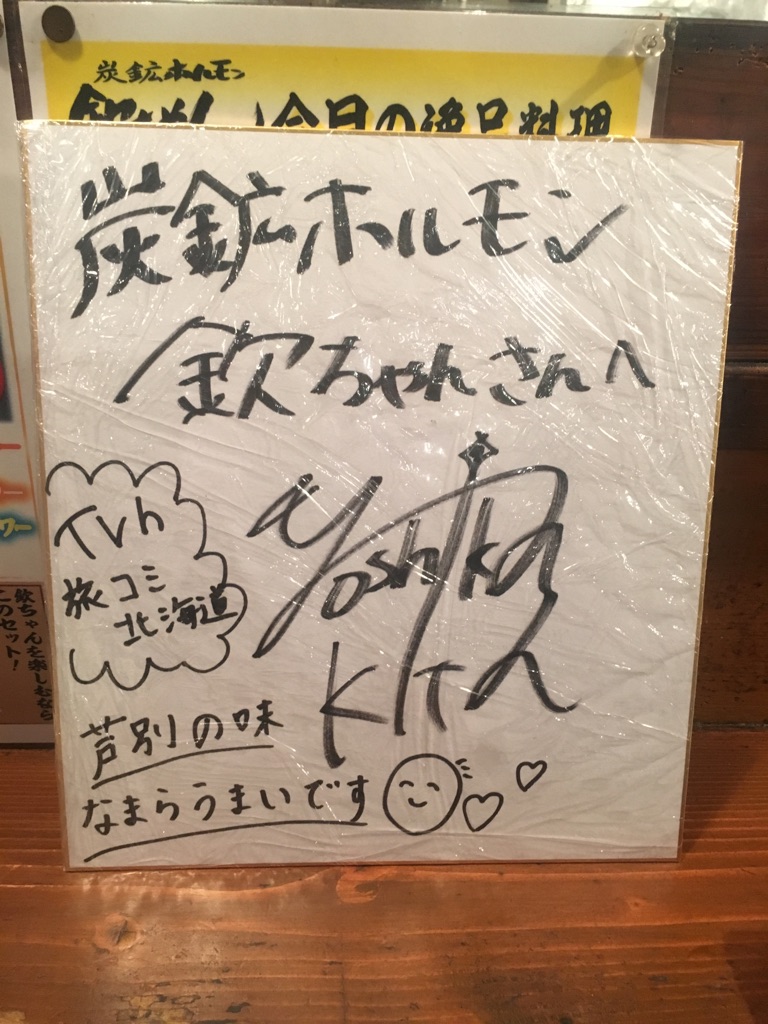 炭鉱ホルモン
今日の逸品料理
炭鉱ホルモン
欽ちゃんさんへ
Tvh
旅コミ
北海道
Yoshika
KITA
芦別の味
なまらうまいです
欽ちゃんを楽しむなら
このセット！